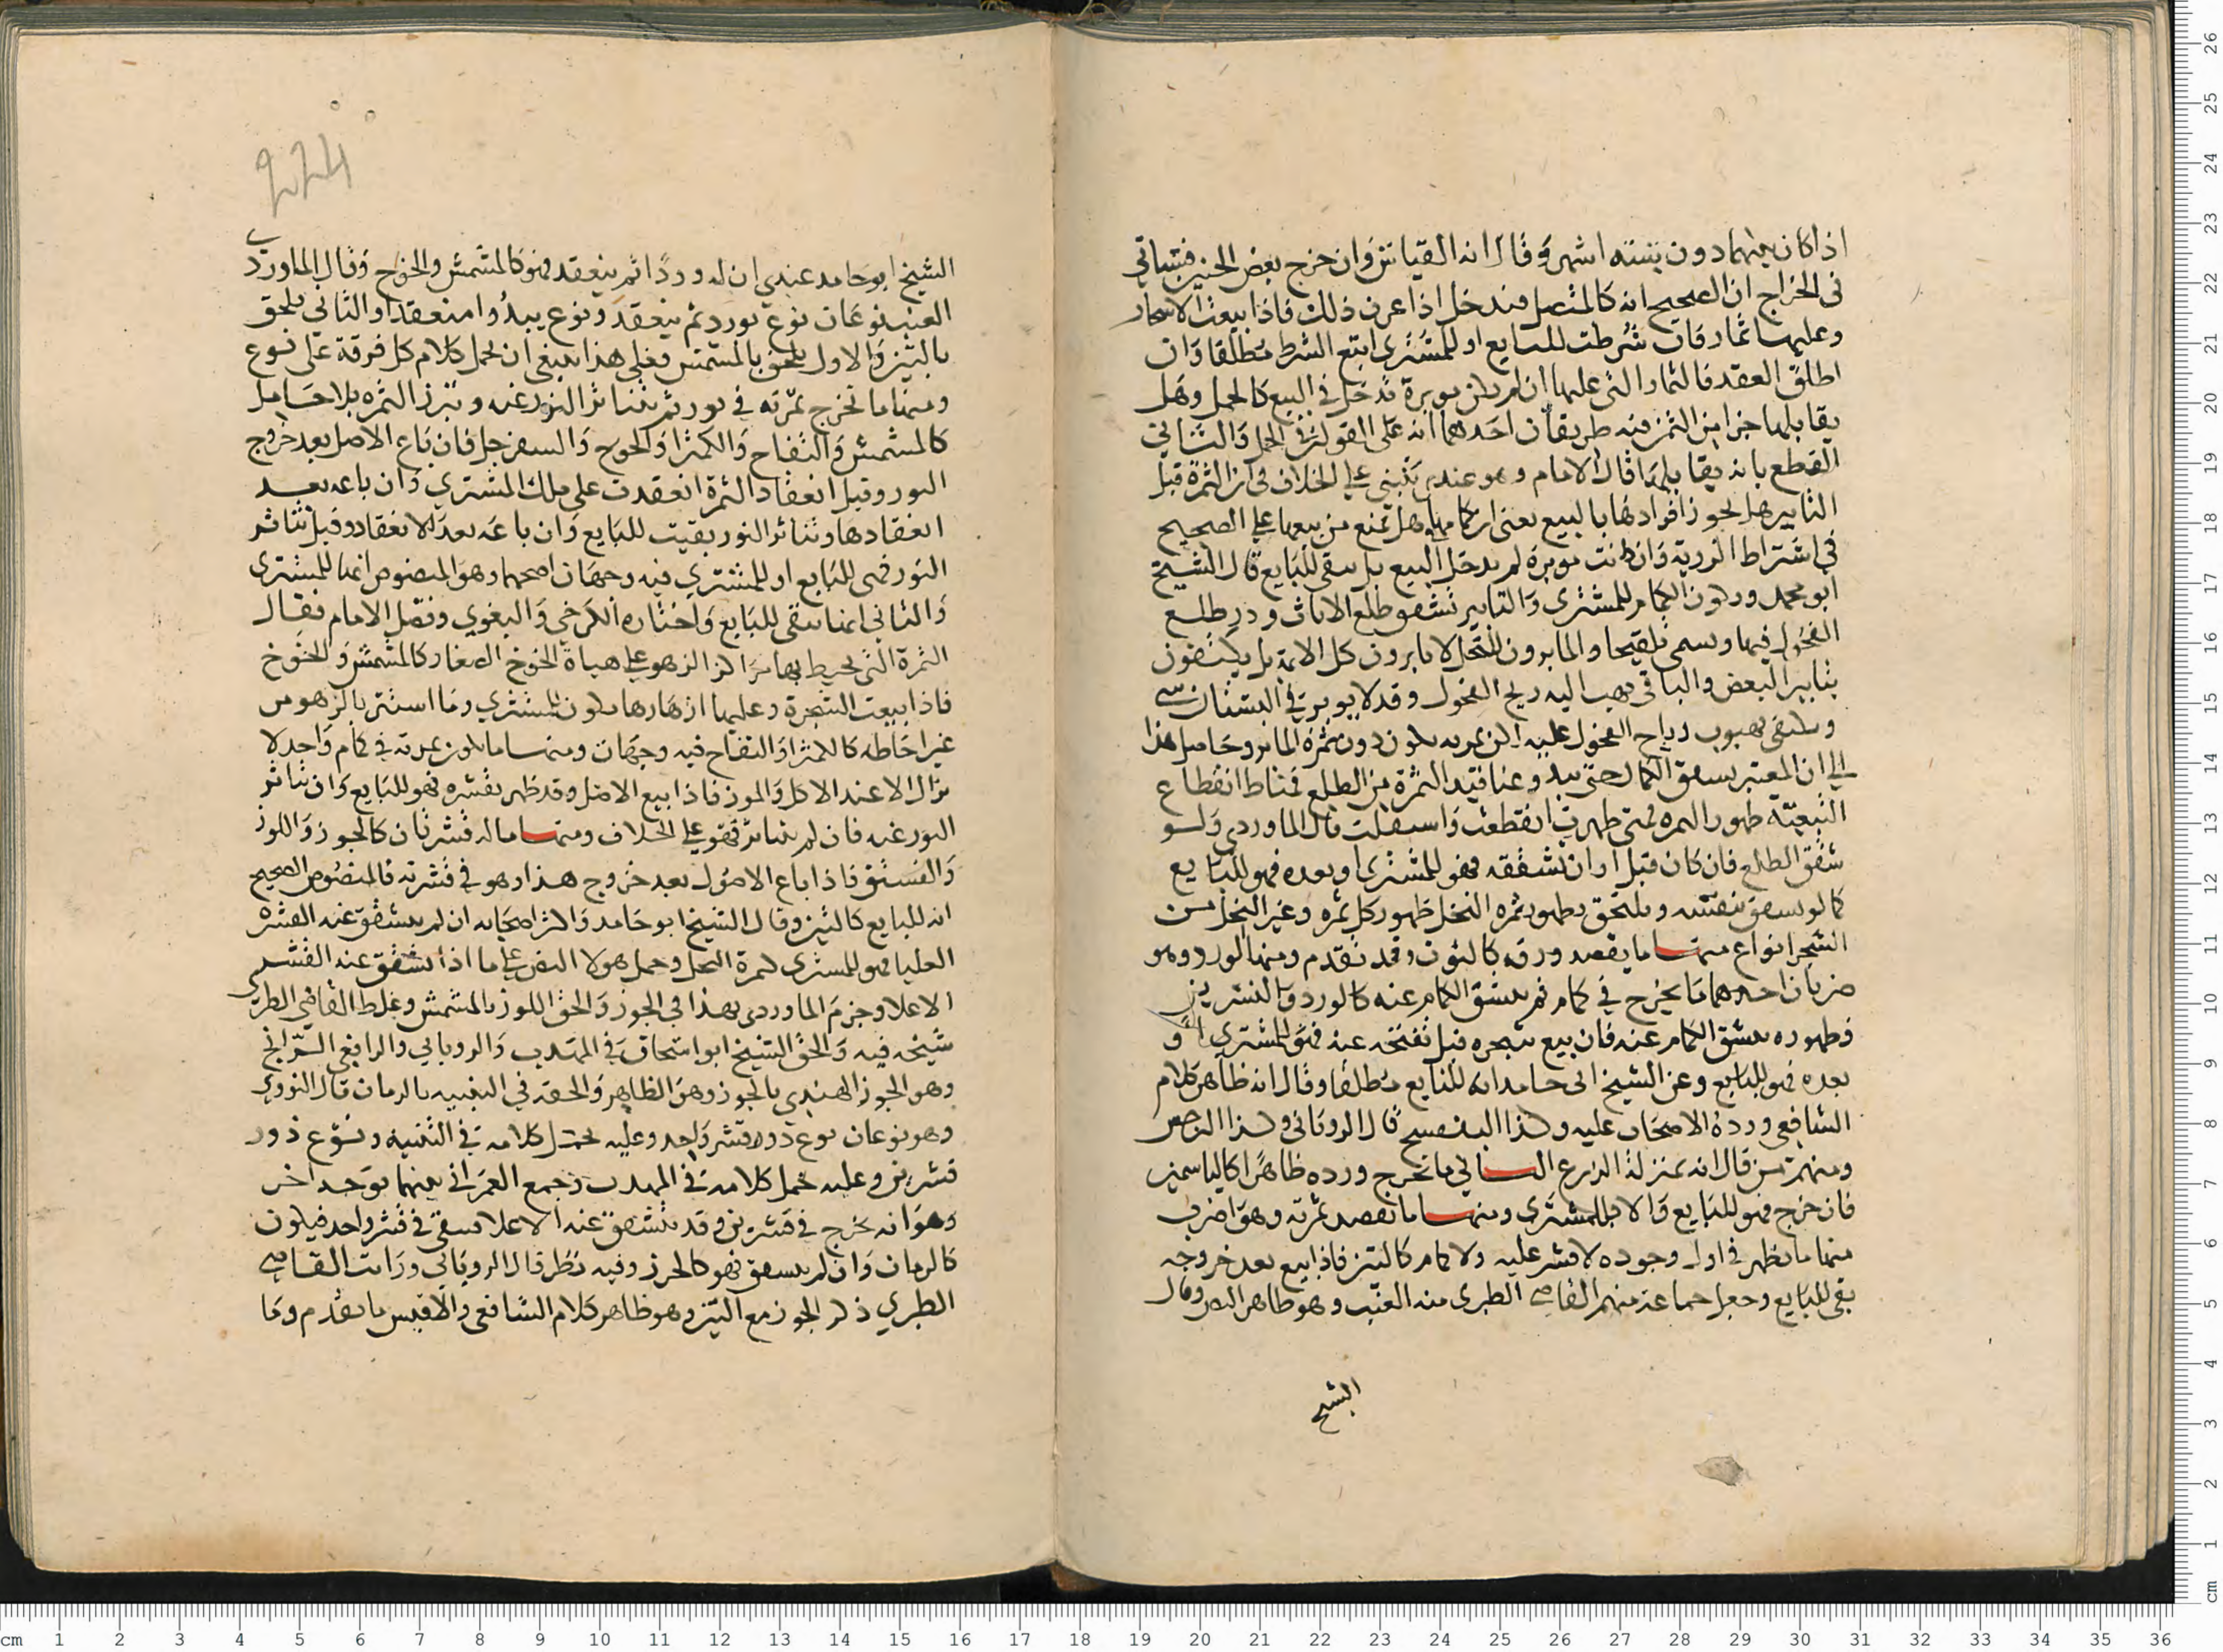 اذا كان بينهما دون ستة اشهر وقال انه القياس وان خرج بعض الجنين فسياتي
في الخراج ان الصحيح انه كالمتصل فيدخل اذا عرف ذلك فاذا بيعت الاشجار
وعليها ثمار فان شرطت للبايع او للمشتري اتبع الشرط مطلقا وان
اطلق العقد فالثمار التي عليها ان لم يكن موبرة تدخل في البيع كالحمل وهل
يقابلها جزا من الثمن فيه طريقان احدهما انه على القولين في الحمل والثاني
القطع بانه يقابلها قال الامام وهو عندي يبتني على الخلاف في ان الثمرة قبل
التابير هل يجوز افرادها بالبيع يعني ان كمامها هل تمنع من بيعها على الصحيح
في اشتراط الروية وان كانت موبرة لم يدخل البيع بل يبقى للبايع قال الشيخ
ابو محمد ويكون الكمام للمشتري والتابير تشقيق طلع الاناث وذر طلع
الفحول فيها ويسمى تلقيحا والمابرون للنخل لا يابرون كل الاية بل يكتفون
بتابير البعض والباقي يهب اليه ريح الفحول وقد لا يوبر في البستان شي
ويكتفى بهبوب رياح الفحول عليه لكن ثمرته يكون دون ثمرة المابر وحاصل هذا
الى ان المعتبر بتشقق الكمام حتى يبدو عناقيد الثمرة من الطلع فمناط انقطاع
التبعية ظهور الثمره فمتى ظهرت انقطعت واستقلت قال الماوردي ولو
شقق الطلع فان كان قبل اوان تشققه فهو للمشتري او بعده فهو للبايع
كما لو تشقق بنفسه ويلتحق بظهور ثمره النخل ظهور كل ثمره وغير النخل من
الشجر انواع منها ما يقصد ورقه كالتوت وقد تقدم ومنها الورد وهو
ضربان احدهما ما يخرج في كمام ثم ينشق الكمام عنه كالورد والنسرين
فظهوره بتشقق الكمام عنه فان بيع شجره قبل تفتحه عنه فهو للمشتري او
بعده فهو للبايع وعن الشيخ ابي حامد انه للبايع مطلقا وقال انه ظاهر كلام
الشافعي ورده الاصحاب عليه وكذا البنفسج قال الروياني وكذا النرجس
ومنهم من قال انه بمنزلة الزرع الثاني ما يخرج ورده ظاهرا كالياسمين
فان خرج فهو للبايع والا فللمشتري ومنها ما تقصد ثمرته وهو اضرب
منها ما يظهر في اول وجوده لا قشر عليه ولا كمام كالتين فاذا بيع بعد خروجه
بقي للبايع وجعل جماعة منهم القاضي الطبري منه العنب وهو ظاهر النص وقال
الشيخ
الشيخ ابو حامد عندي ان له وردا ثم ينعقد فهو كالمشمش والخوخ وقال الماوردي
العنب نوعان نوع يورد ثم ينعقد ونوع يبدوا منعقدا والثاني يلحق
بالتين والاول يلحق بالمشمش فعلى هذا ينبغي ان يحمل كلام كل فرقة على نوع
ومنها ما تخرج ثمرته في نور ثم يتناثر النور عنه وتبرز الثمره بلا حامل
كالمشمش والتفاح والكمثرا والخوخ والسفرجل فان باع الاصل بعد خروج
النور وقبل انعقاد الثمرة انعقدت على ملك المشتري وان باعه بعد
انعقادها وتناثر النور بقيت للبايع وان باعه بعد الانعقاد وقبل تناثر
النور فهي للبايع او للمشتري فيه وجهان اصحهما وهو المنصوص انها للمشتري
والثاني انها تبقى للبايع واختاره الكرخي والبغوي وفصل الامام فقال
الثمرة التي يحيط بها مراكز الزهو على هياة الخوخ الصغار كالمشمش والخوخ
فاذا بيعت الشجرة وعليها ازهارها يكون للمشتري وما استتر بالزهو من
غير احاطه كالكمثرا والتفاح فيه وجهان ومنها ما يكون ثمرته في كمام واحد لا
يزال الا عند الاكل والموز فاذا بيع الاصل وقد ظهر بقشره فهو للبايع وان تناثر
النور عنه فان لم يتناثر فهو على الخلاف ومنها ما له قشرتان كالجوز واللوز
والفستق فاذا باع الاصول بعد خروج هذا وهو في قشرته فالمنصوص الصحيح
انه للبايع كالتين وقال الشيخ ابو حامد واكثر اصحابه ان لم يتشقق عنه القشره
العليا فهو للمشتري كثمرة النخل وحمل هولا النص على ما اذا تشقق عنه القشر
الاعلا وجزم الماوردي بهذا في الجوز والحق اللوز بالمشمش وغلط القاضي الطبري
شيخه فيه والحق الشيخ ابو اسحاق في المهذب والروياني والرافعي الرانج
وهو الجوز الهندي بالجوز وهو الظاهر والحقه في التنبيه بالرمان قال النووي
وهو نوعان نوع ذو قشر واحد وعليه يحمل كلامه في التنبيه ونوع ذو
قشرين وعليه يحمل كلامه في المهذب وجمع العمراني بينهما بوجه اخر
وهو انه يخرج في قشرين وقد يتشقق عنه الاعلا فيبقى في قشر واحد فيكون
كالرمان وان لم يتشقق فهو كالجوز وفيه نظر قال الروياني ورايت القاضي
الطبري ذكر الجوز مع التين وهو ظاهر كلام الشافعي والاقيس ما تقدم وما